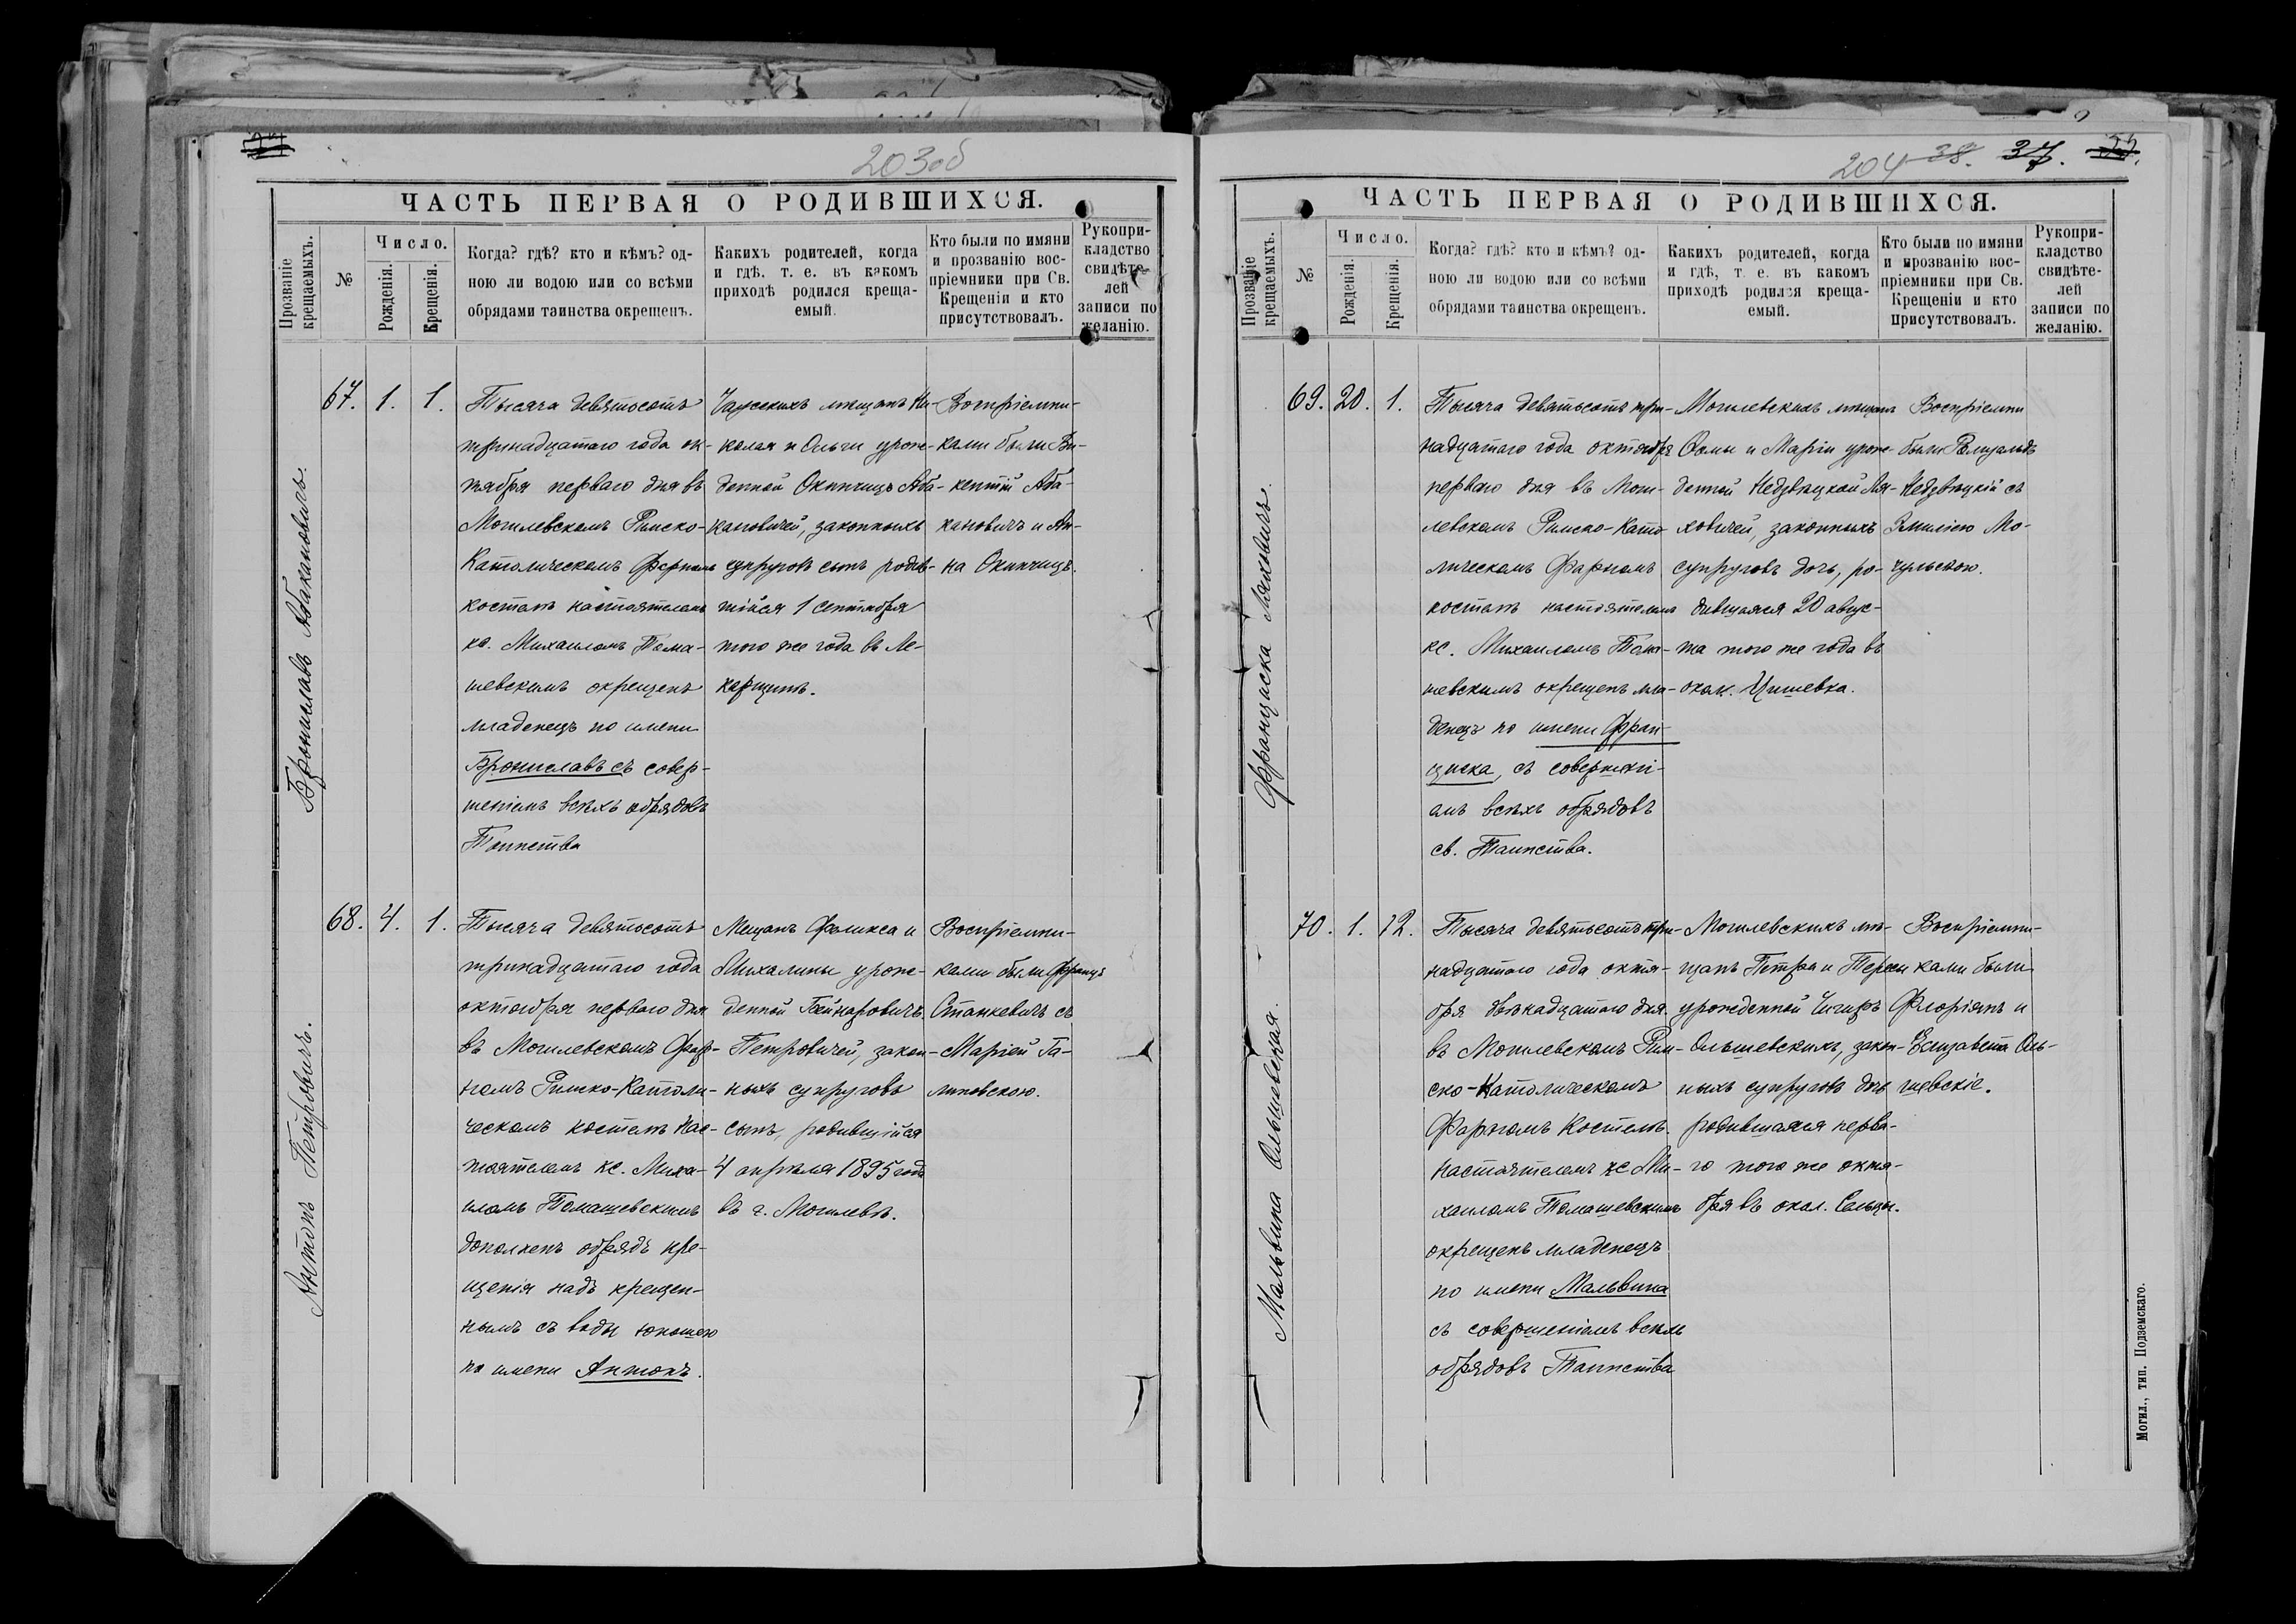 203об
ЧАСТЬ ПЕРВАЯ О РОДИВШИХСЯ.
Прозваніе крещаемыхъ.
№
Число.
Рожденія.
Крещенія.
Когда? гдѣ? кто и кѣмъ? од-
ною ли водою или со всѣми
обрядами таинства окрещенъ.
Какихъ родителей, когда
и гдѣ, т. е. въ какомъ
приходѣ родился креща-
емый.
Кто были по имяни
и прозванію вос-
пріемники при Св.
Крещеніи и кто
присутствовалъ.
Рукопри-
кладство
свидѣте-
лей
записи по
желанію.
Брониславъ Абакановичъ.
67.
1.
1.
Тысяча девятьсотъ
тринадцатаго года ок-
тября перваго дня въ
Могилевскомъ Римско-
Католическомъ Фарномъ
костелѣ настоятелемъ
кс. Михаиломъ Тома-
шевскимъ окрещенъ
младенецъ по имени
Брониславъ съ совер-
шеніемъ всѣхъ обрядовъ
Таинства
мѣщанъ Ни-
колая и Ольги урож-
денной Окинчицъ Аба-
кановичей, законныхъ
супруговъ сынъ родив-
шійся 1 сентября
того же года въ
Воспріемни-
ками были Ви-
кентій Аба-
кановичъ и Ан-
на Окинчицъ.
Антонъ Петровичъ.
68.
4.
1.
Тысяча девятьсотъ
тринадцатаго года
октября перваго дня
въ Могилевскомъ Фар-
номъ Римско-Католи-
ческомъ костелѣ нас-
тоятелемъ кс. Миха-
иломъ Томашевскимъ
дополненъ обрядъ кре-
щенія надъ крещен-
нымъ съ воды юношею
по имени Антонъ.
Мѣщанъ Феликса и
Михалины урож-
денной
Петровичей, закон-
ныхъ супруговъ
сынъ, родившійся
4 апрѣля 1895 года
въ г. Могилевѣ.
Воспріемни-
ками были Францъ
Станкевичъ съ
Маріей Га-
линовскою.
204 38. 37.
ЧАСТЬ ПЕРВАЯ О РОДИВШИХСЯ.
Прозваніе крещаемыхъ.
№
Число.
Рожденія.
Крещенія.
Когда? гдѣ? кто и кѣмъ? од-
ною ли водою или со всѣми
обрядами таинства окрещенъ.
Какихъ родителей, когда
и гдѣ, т. е. въ какомъ
приходѣ родился креща-
емый.
Кто были по имяни
и прозванію вос-
пріемники при Св.
Крещеніи и кто
присутствовалъ.
Рукопри-
кладство
свидѣте-
лей
записи по
желанію.
Франциска Ляховичъ.
69.
20.
1.
Тысяча девятьсотъ три-
надцатаго года октября
перваго дня въ Моги-
левскомъ Римско-Като-
лическомъ Фарномъ
костелѣ настоятелемъ
кс. Михаиломъ Тома-
шевскимъ окрещенъ мла-
денецъ по имени Фран-
циска, съ совершені-
емъ всѣхъ обрядовъ
св. Таинства.
Могилевскихъ мѣщанъ
Ѳомы и Маріи урож-
денной Недзвѣцкой Ля-
ховичей, законныхъ
супруговъ дочь, ро-
дившаяся 20 авгус-
та того же года въ
окол. Цишевка.
Воспріемни
были Ромуальдъ
Недзвѣцкій съ
Эмиліею Мо-
чульскою.
Мальвина Ольшевская.
70.
1.
12.
Тысяча девятьсотъ три-
надцатаго года октя-
бря двѣнадцатаго дня
въ Могилевскомъ Рим-
ско-Католическомъ
Фарномъ Костелѣ
настоятелемъ кс Ми-
хаиломъ Томашевскимъ
окрещенъ младенецъ
по имени Мальвина
съ совершеніемъ всѣхъ
обрядовъ Таинства
Могилевскихъ мѣ-
щанъ Петра и Терезы
урожденной Чигиръ
Ольшевскихъ, закон-
ныхъ супруговъ дочь
родившаяся перва-
го того же октя-
бря въ окол. Сельцы.
Воспріемни-
ками были
Флоріянъ и
Елизавета Оль-
шевскіе.
Могил., тип. Подземскаго.